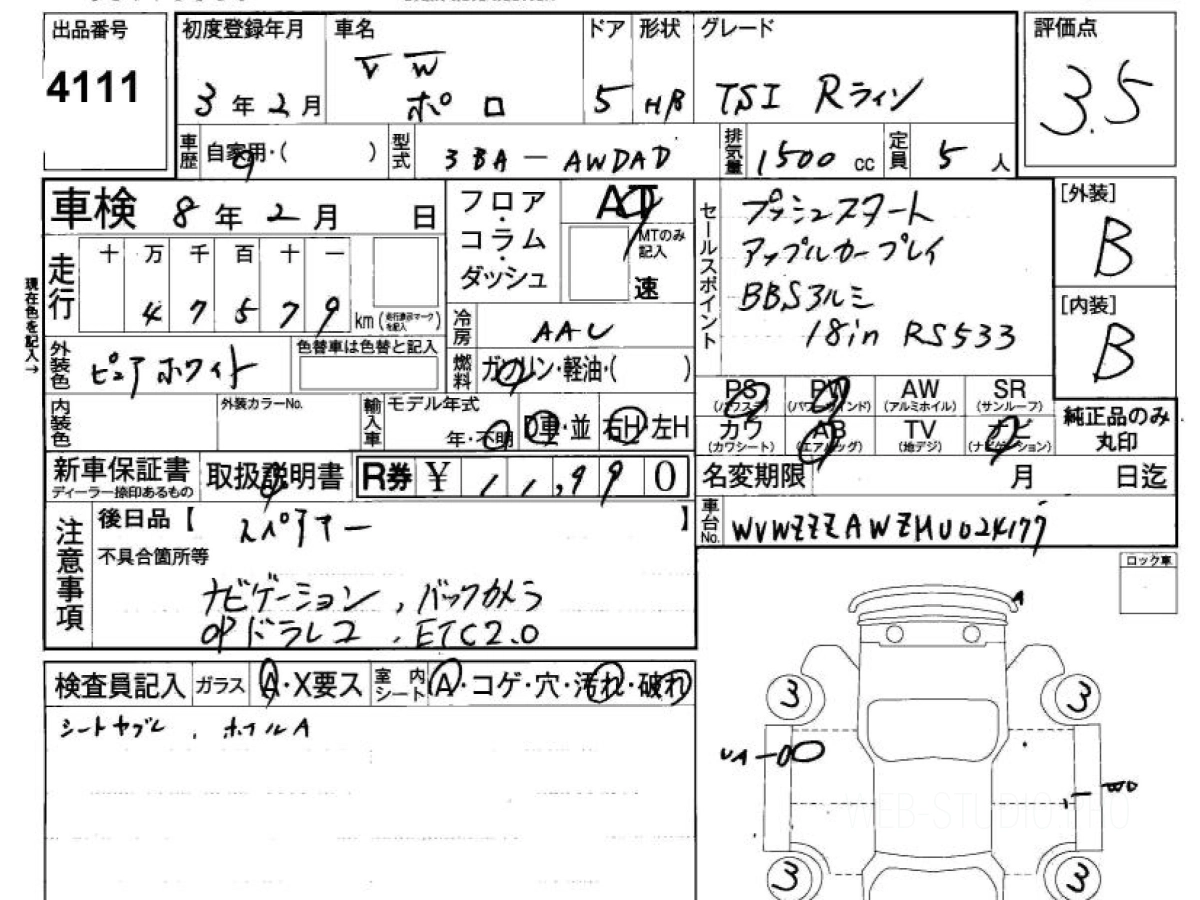 出品番号 初度登録年月 車名 ドア 形状 グレード 評価点
4111 3年2月 VW ポロ 5 HB TSI Rライン 3.5
車歴 自家用・( ) 型式 3BA-AWDAD 排気量 1500 cc 定員 5人
車検 8年2月 日
フロア・コラム・ダッシュ
AT
MTのみ記入
速
セールスポイント
プッシュスタート
アップルカープレイ
BBSアルミ
18in RS533
[外装]
B
[内装]
B
現在色を記入→
走行 十 万 千 百 十 一
4 7 5 7 9 km (走行表示マークを記入)
冷房 AAC
外装色 ピュアホワイト 色替車は色替と記入
燃料 ガソリン・軽油・( )
PS (パワステ) PW (パワーウインド) AW (アルミホイル) SR (サンルーフ)
カワ (カワシート) AB (エアバッグ) TV (地デジ) ナビ (ナビゲーション)
純正品のみ丸印
内装色 外装カラーNo. 輸入車 モデル年式
年・不明 D車・並 右H・左H
新車保証書 ディーラー捺印あるもの 取扱説明書 R券 ¥ 11,990
名変期限 月 日迄
車台No. WVWZZZAWZMU024177
注意事項
後日品【 スペアキー 】
不具合箇所等
ナビゲーション、バックカメラ
OPドラレコ、ETC2.0
ロック車
検査員記入 ガラス A・X要ス 室内シート A・コゲ・穴・汚れ・破れ
シートヤブレ、ホイルA
A
3 3
3 3
WEB-STUDIO.PRO